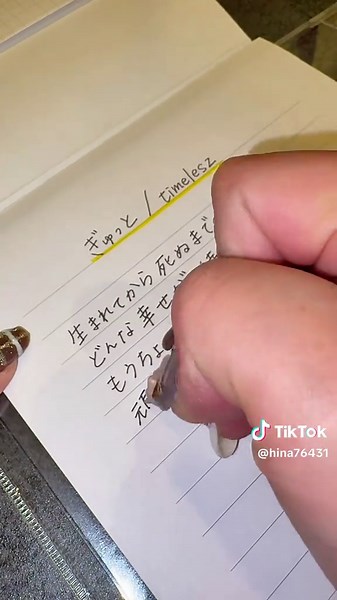 ぎゅっと / timelesz
生まれてから 死ぬまで
どんな 幸せが
もうちょ
頑
TikTok
@hina76431